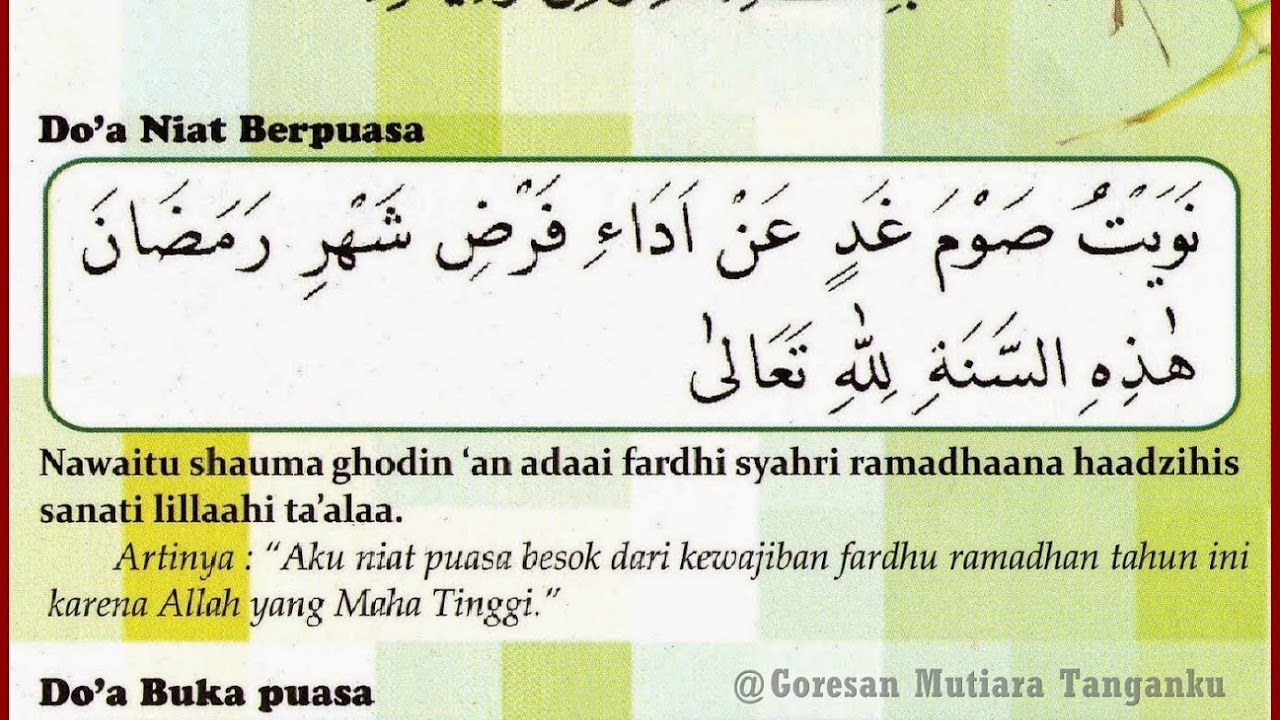 Do'a Niat Berpuasa
نَوَيْتُ صَوْمَ غَدٍ عَنْ اَدَاءِ فَرْضِ شَهْرِ رَمَضَانَ
هٰذِهِ السَّنَةِ لِلّٰهِ تَعَالىٰ
Nawaitu shauma ghodin 'an adaai fardhi syahri ramadhaana haadzihis
sanati lillaahi ta'alaa.
Artinya : "Aku niat puasa besok dari kewajiban fardhu ramadhan tahun ini
karena Allah yang Maha Tinggi."
Do'a Buka puasa
@Goresan Mutiara Tanganku